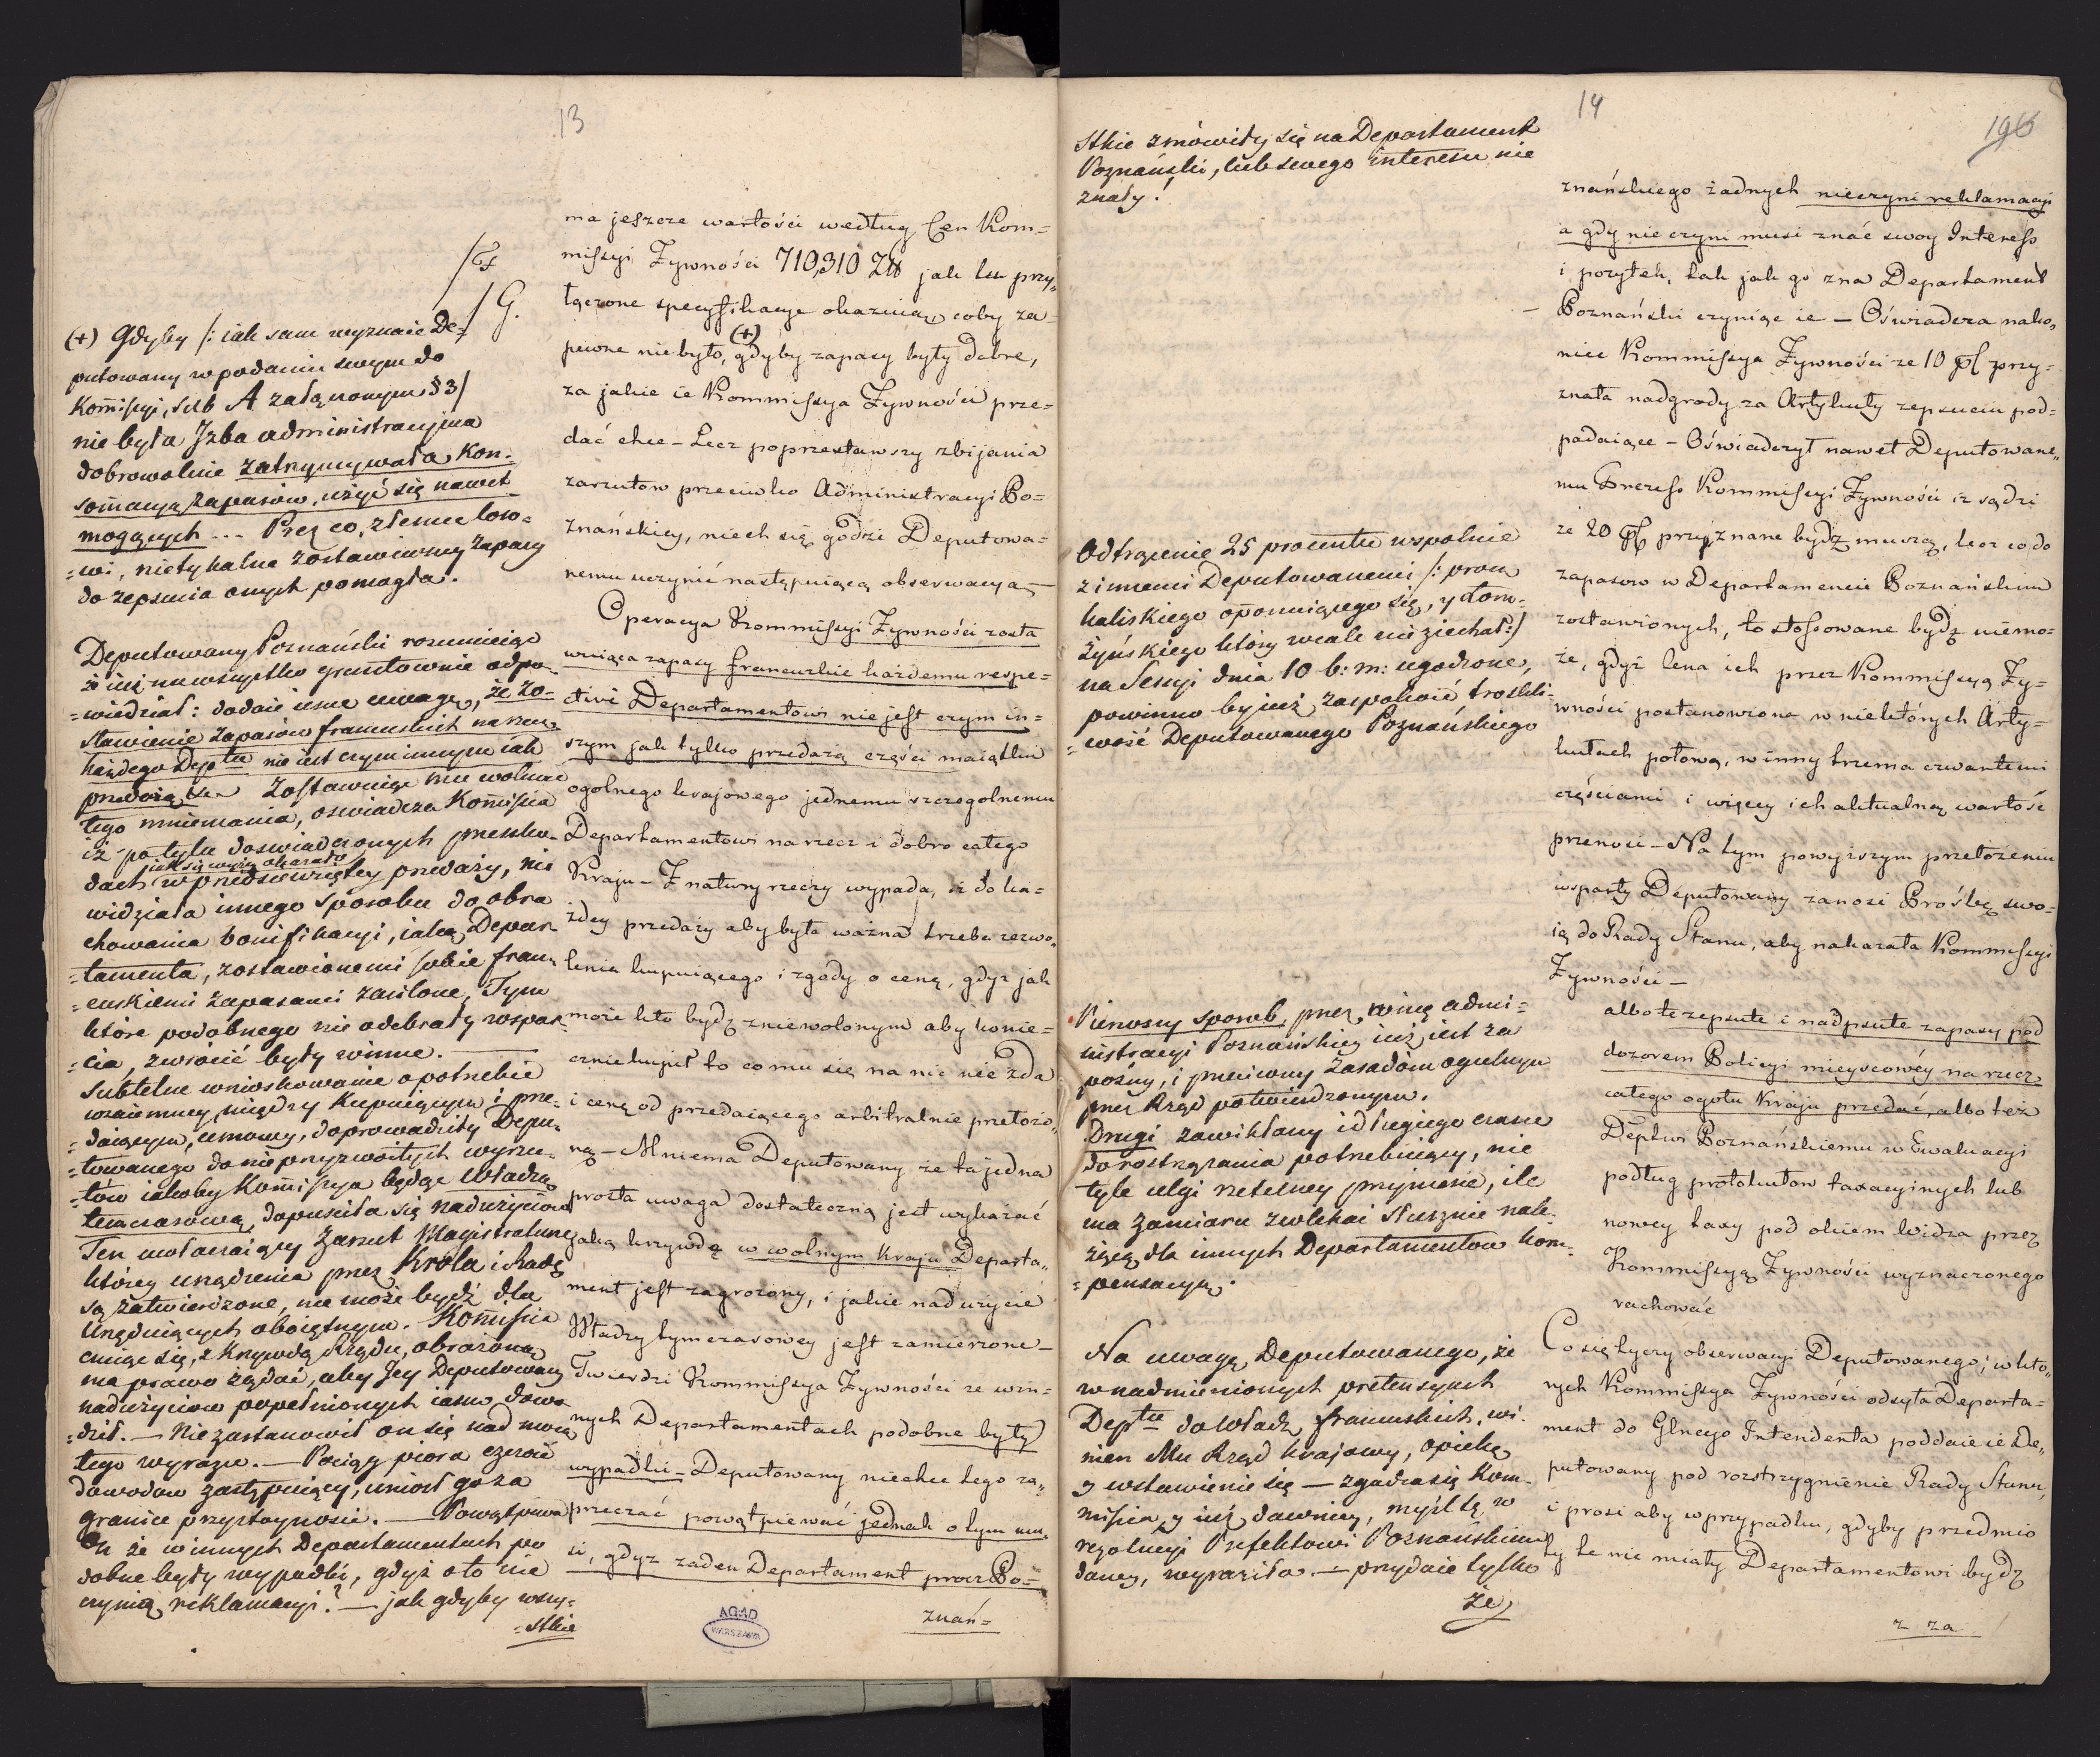 13
/F
/G.
(+) Gdyby /: iak sam wyznaie De-
putowany w podaniu swym do
Kom̄isyi, sub A załączonym § 3/
nie była Jzba administracyjna
dobrowolnie zatrzymywała kon-
som̄acyą zapasów, użyć się nawet
mogących ... Przez co, złemu loso-
=wi, nietykalne zostawiwszy zapasy
do zepsucia onych pomogła.
Deputowany Poznański rozumieiąc
że iuż na wszystko gruntownie odpo-
=wiedział: dodaie iesze uwagę, że zo-
stawienie zapasów francuskich na rzecz
każdego Dep<sup>tu</sup> nie iest czym innym iak
przedażą. Zostawuiąc mu wolność
tego mniemania, oświadcza Kom̄isia
iż po tylu doswiadczonych przeszko-
dach jak się wyżey okazało w przedsięwziętey przedaży, nie
widziała innego sposobu do obra
chowania bonifikacyi, iaką Depar-
=tamenta, zostawionemi sobie fran-
=cuskiemi zapasami zasilone, Tym
które podobnego nie odebrały wspar-
=cia, zwrócić były winne. —
Subtelne wnioskowanie o potrzebie
wzaiemney między Kupuiącym i prze-
=daiącym, umowy, doprowadziły Depu-
=towanego do nieprzyzwoitych wyrzu-
=tów iakoby Kom̄isya będąc Władzą
tymczasową, dopuściła się nadużyciów
Ten uwłaczaiący zarzut Magistraturze
którey urządzenia przez Króla i Radę
są zatwierdzone, nie może bydź dla
Urzęduiących oboiętnym. Kom̄isia
czuiąc się, z krzywdą Rządu, obrażoną
ma prawo żądać, aby Jey Deputowany
nadużyciow popełnionych iasno dowo-
=dził. — Nie zastanowił on się nad mocą
tego wyrazu. — Pociąg piora czczość
dowodow zastępuiący, uniosł go za
granice przystoyności. — Powątpiewa
On że w innych Departamentach po
dobne były wypadki, gdyż o to nie
czynią reklamacyi? — jak gdyby wszy-
=stkie
ma jeszcze wartości według Cen Kom=
missyi Żywności 710,310 Zł jak tu przy„
łączone specyfikacye okazuią, coby za-
pewne niebyło, (+) gdyby zapasy były dobre,
za jakie ie Kommissya Żywności prze=
dać chce – Lecz poprzestawszy zbijania
zarzutow przeciwko Administracyi Po=
znańskiey, niech się godzi Deputowa=
nemu uczynić następuiącą obserwacyą —
Operacya Kommissyi Żywności zosta
wuiąca zapasy francuzkie każdemu respe=
ctivè Departamentowi nie jest czym in=
szym jak tylko przedażą części maiątku
ogolnego krajowego jednemu szczegolnemu
Departamentowi na rzecz i dobro całego
Kraju – Z natury rzeczy wypada, iż do ka=
żdey przedaży aby była ważna trzeba zezwo„
lenia kupuiącego i zgody o cenę, gdyż jak
może kto bydz zniewolonym aby konie=
cznie kupił to co mu się na nic nie zda
i cenę od przedaiącego arbitralnie przełożo„
ną – Mniema Deputowany że ta jedna
prosta uwaga dostateczną jest wykazać
jaką krzywdą w wolnym Kraju Departa„
ment jest zagrożony, i jakie nadużycie
Władzy tymczasowey jest zamierzone –
Twierdzi Kommissya Żywności że w in=
nych Departamentach podobne były
wypadki – Deputowany niechce tego za„
przeczać powątpiewać jednak o tym mu„
si, gdyż zaden Departament procz Po=
znań=
AGAD
WARSZAWA
14
196
stkie zmówiły się na Departament
Poznański, lub swego interesu nie
znały!
Odtrącenie 25 procentu wspolnie
z innemi Deputowanemi /: procz
kaliskiego oponuiącego się, y Łom-
żyńskiego który wcale nie ziechał :/
na Sessyi dnia 10 b: m: ugodzone,
powinno by już zaspokoić troskli-
=wość Deputowanego Poznańskiego
Pierwszy sposob przez winę admi-
nistracyi Poznańskiey już iest za
poźny, i przeciwny zasadom ogulnym
przez Rząd potwierdzonym.
Drugi zawikłany i długiego czasu
do rostrząsania potrzebuiący, nie
tyle ulgi rzetelney przyniesie, ile
ma zamiaru zwlekai słusznie nale-
żącą dla innych Departamentow kom-
=pensacyą.
Na uwagę, Deputowanego, że
w nadmienionych pretensyach
Dep<sup>tu</sup> do Władz francuskich, wi-
nien Mu Rząd krajowy, opiekę
y wstawienie się — zgadza się Kom-
misia y już dawniey, myśl tę w
rezolucyi Prefektowi Poznańskiemu
daney, wyraziła. — przydaie tylko
że
znańskiego żadnych nieczyni reklamacyi
a gdy nie czyni musi znać swoy Interess
i pożytek, tak jak go zna Departament
Poznański czyniąc ie – Oświadcza nako„
niec Kommissya Żywności że 10 p[ct] przy=
znała nadgrody za Artykuły zepsuciu pod=
padaiące – Oświadczył nawet Deputowane„
mu Prezess Kommissyi Żywności iż sądzi
że 20 p[ct] przyznane bydz muszą, lecz co do
zapasow w Departamencie Poznańskim
zostawionych, to stossowane bydz niemo=
że, gdyż cena ich przez Kommissyą Ży=
wności postanowiona w niektórych Arty=
kułach połową, w inny trzema czwartemi
częściami i więcey ich aktualną wartość
przenosi – Na tym powyższym przełożeniu
wsparty Deputowany zanosi Prośbę swo=
ią do Rady Stanu, aby nakazała Kommissyi
Żywności —
albo te zepsute i nadpsute zapasy pod
dozorem Policyi mieyscowéy na rzecz
całego ogołu Kraju przedać, albo też
Deptwi Poznańskiemu w Ewaluacyi
podług protokułow taxacyinych lub
nowey taxy pod okiem Widza przez
Kommissyą Żywności wyznaczonego
rachować
Co się tyczy obserwacyi Deputowanego, w któ„
rych Kommissya Żywności odsyła Departa=
ment do Glnego Intendenta poddaie ie De„
putowany pod rozstrzygnienie Rady Stanu,
i prosi aby w przypadku, gdyby przedmio
ty te nie miały Departamentowi bydz
z za